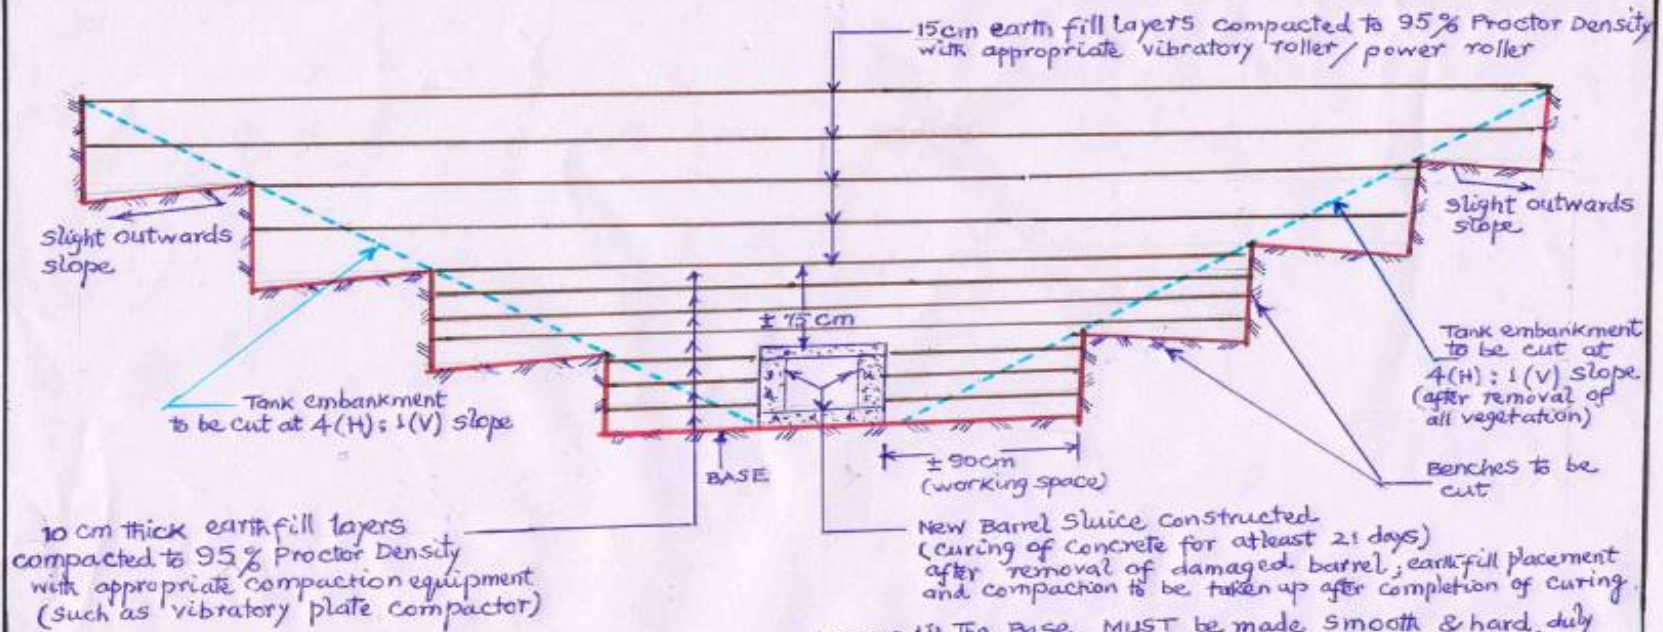 15cm earth fill layers compacted to 95% Proctor Density
with appropriate vibratory roller/power roller
slight outwards
slope
slight outwards
slope
± 75 cm
Tank embankment
to be cut at
4(H):1(V) slope
(after removal of
all vegetation)
Tank embankment
to be cut at 4(H):1(V) slope
BASE
± 90cm
(working space)
Benches to be
cut
10 cm thick earthfill layers
compacted to 95% Proctor Density
with appropriate compaction equipment
(such as vibratory plate compactor)
New Barrel Sluice constructed
(curing of concrete for atleast 21 days)
after removal of damaged barrel; earthfill placement
and compaction to be taken up after completion of curing
The Base MUST be made smooth & hard, duly